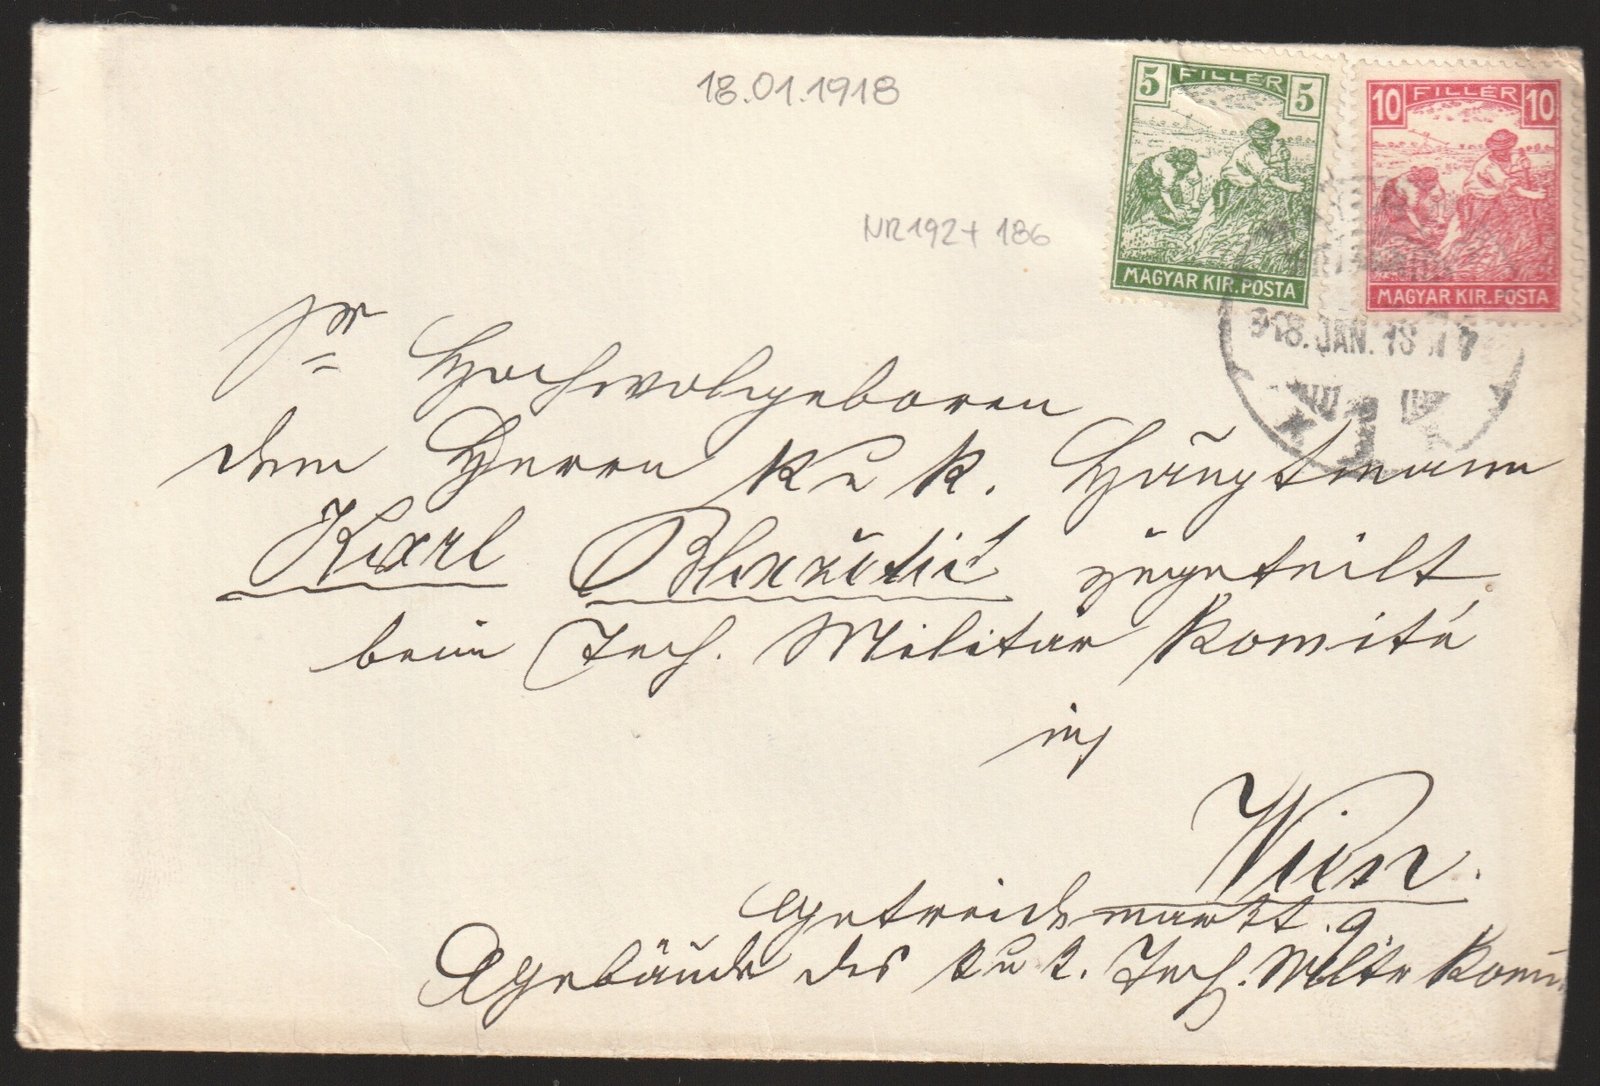 18.01.1918
5 FILLÉR 5
MAGYAR KIR. POSTA
10 FILLÉR 10
MAGYAR KIR. POSTA
NR 192 + 186
918. JAN. 18
1
Sr Hochwolgeboren
dem Herrn K u K. Hauptmann
Karl zugeteilt
beim Tech. Militär Komité
in
Wien.
Getreidemarkt 9.
Gebäude des k u k. Tech. Miltr Komi